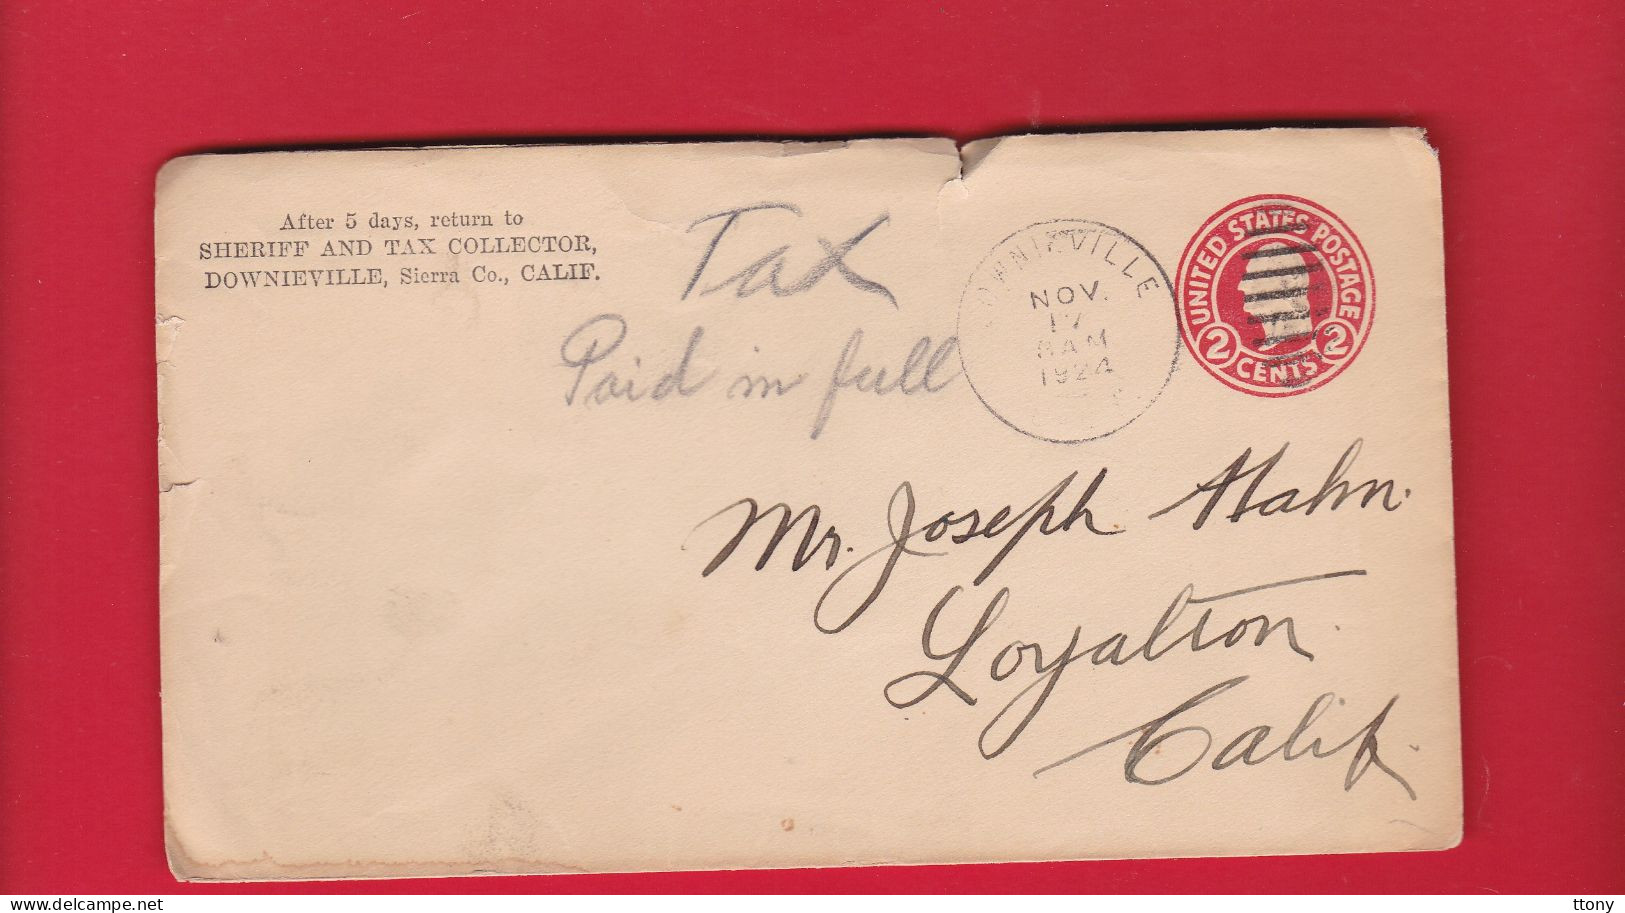 After 5 days, return to
SHERIFF AND TAX COLLECTOR,
DOWNIEVILLE, Sierra Co., CALIF.
Tax
Paid in full
DOWNIEVILLE
NOV.
17
8 AM
1924
UNITED STATES POSTAGE
2 CENTS 2
Mr. Joseph Hahn.
Loyalton
Calif.
delcampe.net
ttony